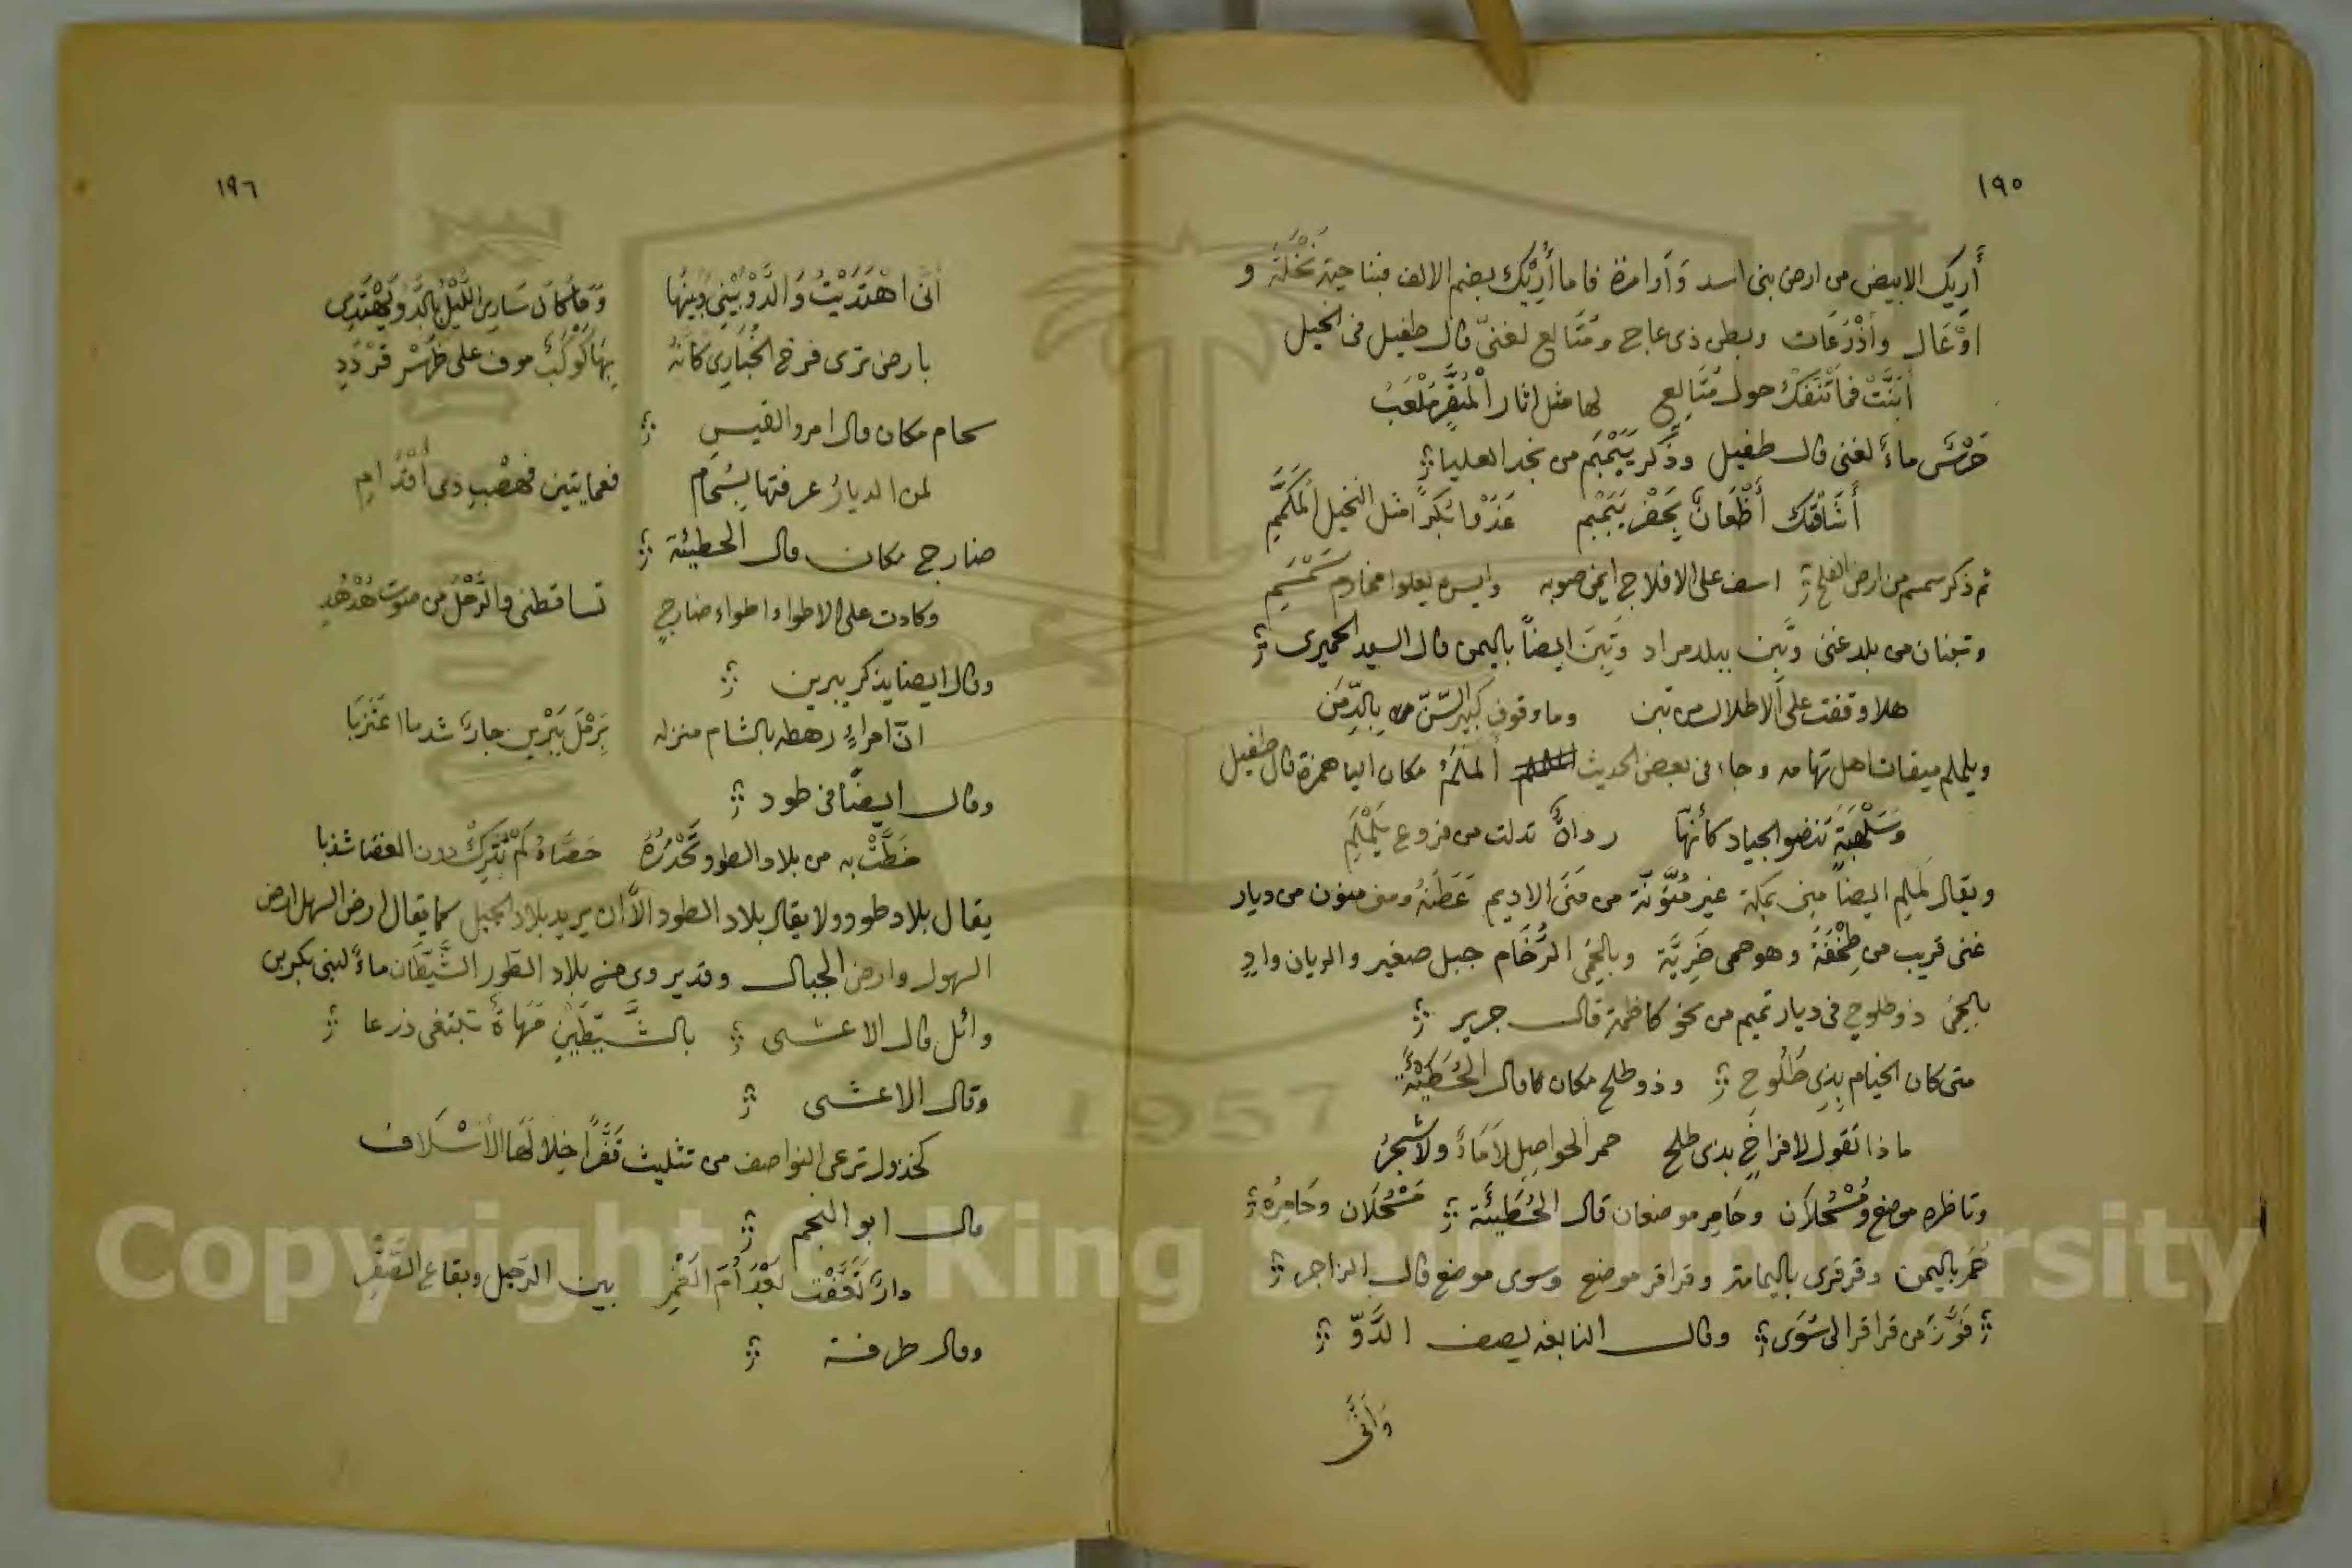 ١٩٥
أَرِيك الابيض من ارض بنى اسد وَأوامرة فاما أُرَيْك بضم الالف فبناحية نَخْلَة و
اوْعَال وأَذْرُعَات وبطن ذى عاج ومُتَالِع لغنىّ قال طفيل فى الخيل
أَبَنَّتْ فما تَنْفَكُّ حول مُتَالِع لها مثل اثار الْمُبَقِّرِ مَلْعَبُ
حَرْسٌ ماءٌ لغنى قال طفيل وذَكر يَبَمْبَم من نجد العليا
أَشَاقَتْك أَظْعَانٌ بجَفْر يَبَمْبَم غَدَوْا بُكَرًا مثل النخيل الْمُكَمَّمِ
ثم ذكر سمسم من ارض الفلج اسف على الافلاج ايمن صوبه وايسره يعلوا مخارم سَمْسَم
وتبنان من بلد غنى وتَبِن ببلد مراد وَتَبِنَ ايضاً باليمن قال السيد الحميرى
هلا وقفت على الاطلال من تبن وما وقوف كبير السّنّ بالدِّمَن
ويلملم ميقات اهل تهامه وجاء فى بعض الحديث أَلَمْلَمُ مكان اليا همزة قال طفيل
وَسَلْهَبَةٍ تنضو الجياد كأنّها رداةٌ تدلت من فروع يَلَمْلَمِ
ويقال لَمْلم ايضاً مِنى بمَكّة غير مُنَوَّنَة من مَنَى الاديم عَطَنَهُ ومنى منون من ديار
غنى قريب من طِخْفَة وهو حمى ضَرِيَّة وبالحِمَى الرُّخَام جبل صغير والريان وادٍ
بالحمَى ذو طلوح فى ديار تميم من نحو كاظمة قال جرير
متى كان الخيام بِذِى طُلُوحٍ وذو طلح مكان كما قال الحُطَيْئَة
ماذا تقول لافراخٍ بذى طلح حمر الحواصِلِ لَا مَاءٌ ولا شجرُ
وناظره موضع ومُسْحُلَان وحَامِر موضعان قال الحُطَيْئَة مُسْحُلَان وحَامِرُهْ
خَمَر باليمن وقرقرى باليمامة وقراقر موضع وسوى موضع قال الراجز
فَوَّزَ من قراقر الى سُوَى وقال النابغه يصف الدَّوّ
وَأَنَّى
١٩٦
أَنَّى اهْتَدَيْتُ وَالدَّوُّ بَيْنِى وَبينهَا وَمَا كَانَ سَارِى اللَّيْلِ بِالدَّوِ يَهْتَدِى
بارض ترى فرخ الحُبَارِى كأنّهُ بِهَا كَوْكَبٌ موف على ظَهْرِ قَرْدَدِ
سحام مكان وقال امرو القيس
لمن الديارُ عرفتها بِسُحَام فعمايتين فهضْبِ ذى أقْدَام
ضارج مكان وقال الحطيئة
وكادت على الاطواء اطواء ضارجٍ تساقطنى والرَّحْلَ من صوت هُدْهُدِ
وقال ايضا يذكر يبرين
انّ امراءً رهطه بالشام منزله بِرَمْلِ يَبْرِين جارًا شد ما اغْتَربَا
وقال ايضًا فى طود
حَطَّتْ به من بلاد الطود تَحْدُرُهُ حَصَّاءُ لَمْ تَتَّرِكْ دون العصا شذبا
يقال بلاد طود ولا يقال بلاد الطود الّا ان يريد بلاد الجبل كما يقال ارض السهل ارض
السهول وارض الجبال وقد يروى من بلاد الطور الشَّيِّطَان ماءً لبنى بكر بن
وائل قال الاعشى بالشَّيِّطَيْنِ مَهَاةٌ تبتغى ذرعا
وقال الاعشى
كخذول ترعى النواصف من تثليث قَفْرًا خلا لَهَا الأَسْلَاف
قال ابو النجم
دارٌ تَعَفَّتْ بَعْدَ أُمّ الغَمْرِ بين الرّجل وبقاع الصَّقْرِ
وقال طرفة